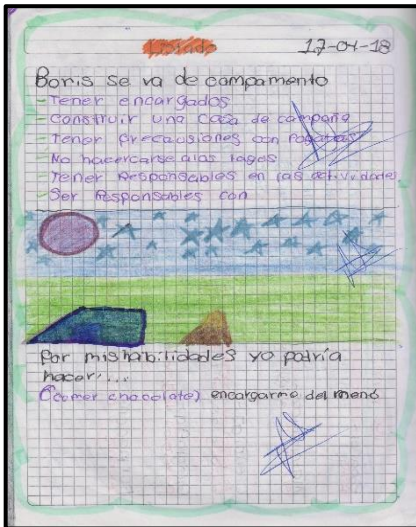 17-04-18
Boris se va de campamento
- Tener encargados
- Construir una casa de campaña
- Tener precausiones con fogatas
- No hacercarse a las lagos
- Tener Responsables en las actividades
- Ser Responsables con
Por mis habilidades yo podría
hacer...
(comer chocolate) encargarme del menú